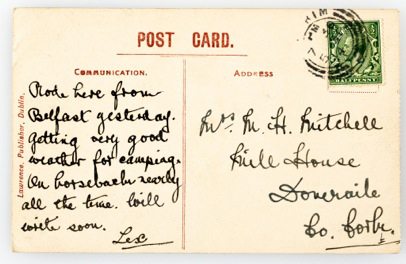 POST CARD.
COMMUNICATION.
Rode here from
Belfast yesterday.
Getting very good
weather for camping.
On horseback nearly
all the time. Will
write soon.
Lex
ADDRESS
Mrs. M. H. Mitchell
Mill House
Doneraile
Co. Cork.
Lawrence, Publisher, Dublin.